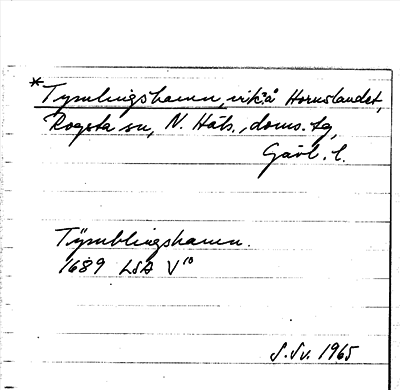 * Tysnlingshamn, vik å Hornslandet,
Rogsta sn, N. Häls. doms. tg,
Gävl. l.
Tÿsnblingshamn.
1689 LSA V¹⁰
S. Sv. 1965